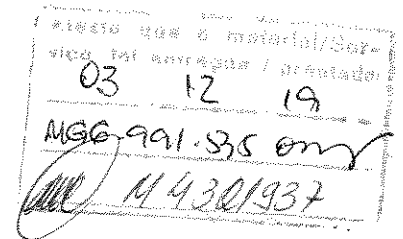 Atesto que o material/Ser-
viço, foi entregue / prestado
03 12 19
MGG-991.535
M 4301937